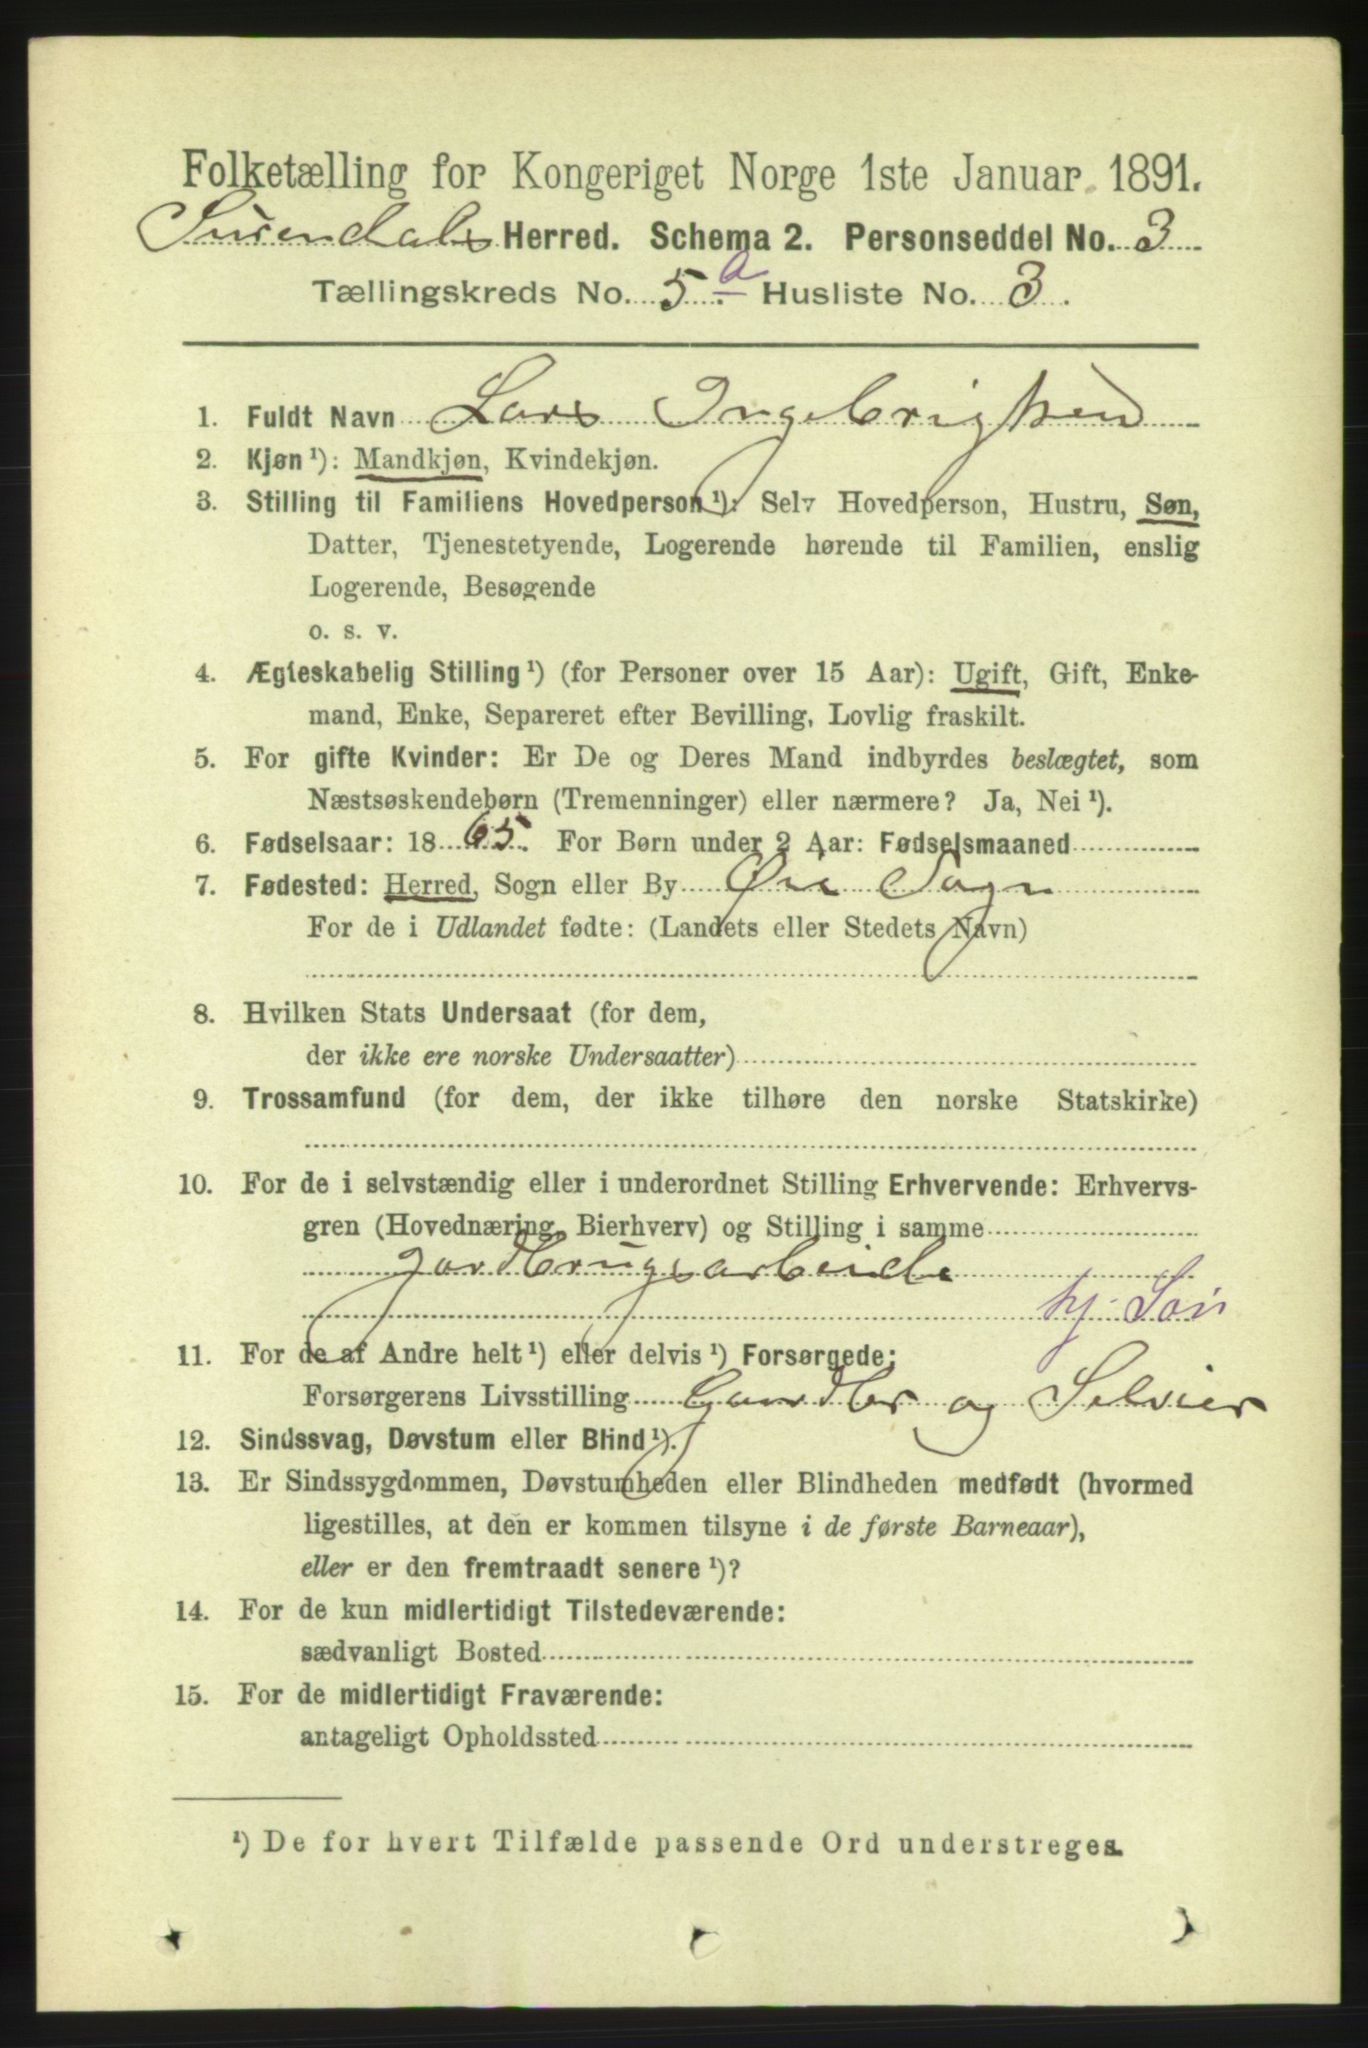 Folketælling for Kongeriget Norge 1ste Januar 1891.
Surendals Herred. Schema 2. Personseddel No. 3
Tællingskreds No. 5.a Husliste No. 3.
1. Fuldt Navn Lars Ingebrigtsen
2. Kjøn ¹): Mandkjøn, Kvindekjøn.
3. Stilling til Familiens Hovedperson ¹): Selv Hovedperson, Hustru, Søn,
Datter, Tjenestetyende, Logerende hørende til Familien, enslig
Logerende, Besøgende
o. s. v.
4. Ægteskabelig Stilling ¹) (for Personer over 15 Aar): Ugift, Gift, Enke-
mand, Enke, Separeret efter Bevilling, Lovlig fraskilt.
5. For gifte Kvinder: Er De og Deres Mand indbyrdes beslægtet, som
Næstsøskendebørn (Tremenninger) eller nærmere? Ja, Nei ¹).
6. Fødselsaar: 1865. For Børn under 2 Aar: Fødselsmaaned
7. Fødested: Herred, Sogn eller By Øre Sogn
For de i Udlandet fødte: (Landets eller Stedets Navn)
8. Hvilken Stats Undersaat (for dem,
der ikke ere norske Undersaatter)
9. Trossamfund (for dem, der ikke tilhøre den norske Statskirke)
10. For de i selvstændig eller i underordnet Stilling Erhvervende: Erhvervs-
gren (Hovednæring, Bierhverv) og Stilling i samme
Jordbrugsarbeide
hj. Søn
11. For de af Andre helt ¹) eller delvis ¹) Forsørgede:
Forsørgerens Livsstilling Gardbr og Selvier
12. Sindssvag, Døvstum eller Blind ¹).
13. Er Sindssygdommen, Døvstumheden eller Blindheden medfødt (hvormed
ligestilles, at den er kommen tilsyne i de første Barneaar),
eller er den fremtraadt senere ¹)?
14. For de kun midlertidigt Tilstedeværende:
sædvanligt Bosted
15. For de midlertidigt Fraværende:
antageligt Opholdssted
¹) De for hvert Tilfælde passende Ord understreges.